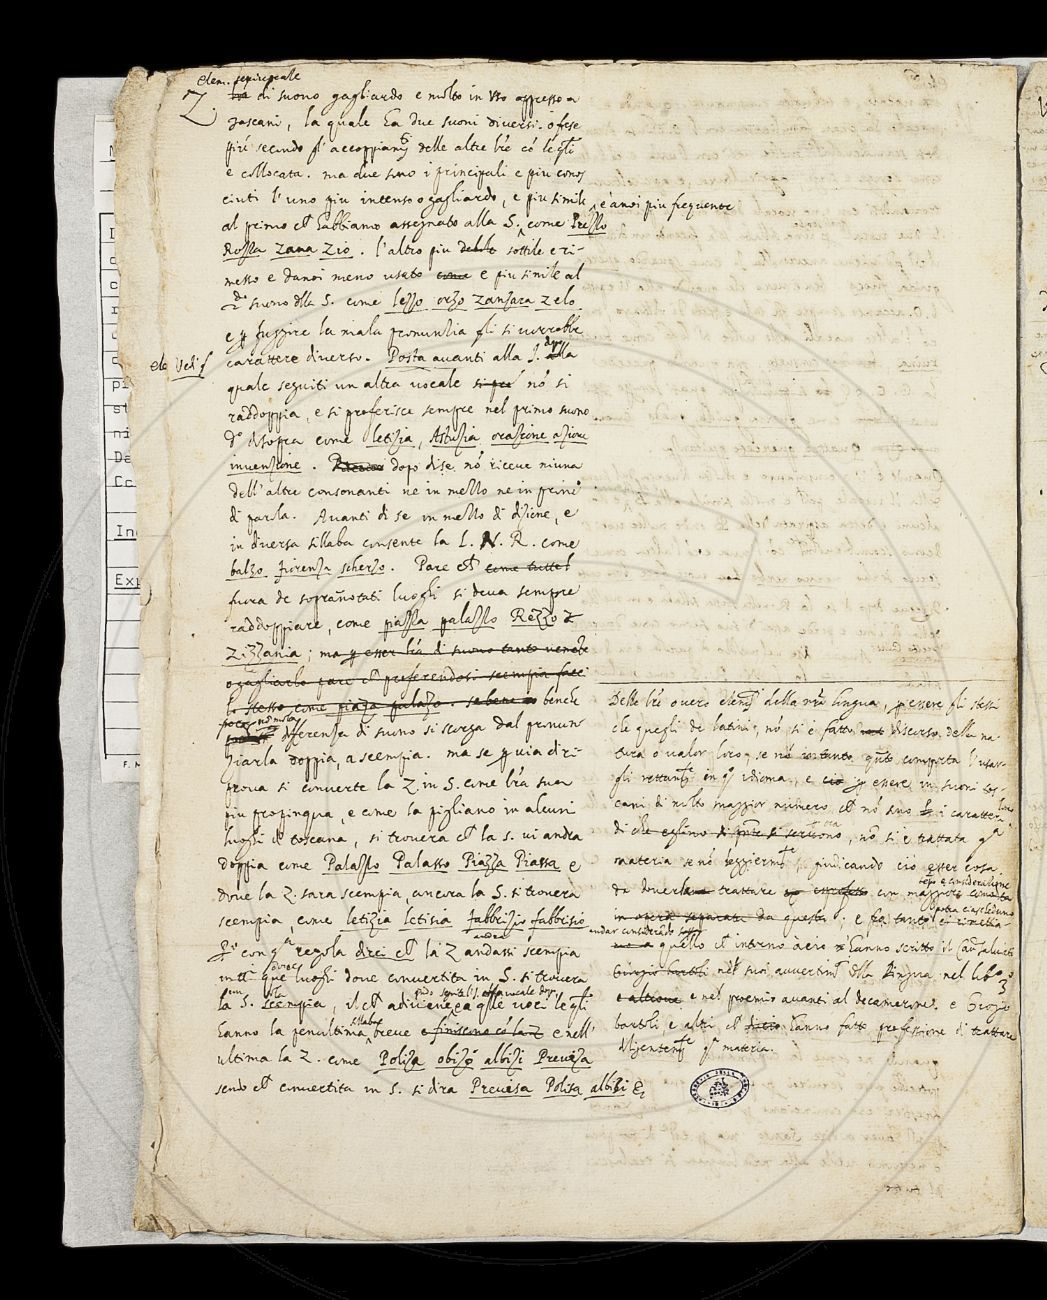 elem. semivocale
Z di suono gagliardo e molto in uso appresso a
Toscani, la quale ha due suoni diversi. o fose
piu secondo gl' accoppiam.ti delle altre lre cō le qli
e collocata. ma due sono i principali e piu conos
ciuti l'uno piu intenso o gagliardo, e piu simile, e anoi piu frequente
al primo ch habbiamo assegnato alla S. come Prezzo
Rozza zana zio. l'altro piu debole sottile e ri-
messo e danoi meno usato come e piu simile al
2.do suono dlla S. come lezzo orzo zanzara zelo
e p fuggire la mala pronunzia gli si vorrebbe
ele Vedi S
carattere diverso. Posta avanti alla I. dopo alla
quale seguiti un altra vocale nō si
raddoppia, e si proferisce sempre nel primo suono
d.o disopra come letizia, Astuzia, orazione azione
invenzione. dopo di se nō riceve niuna
dell'altre consonanti ne in mezzo ne in princ.o
di parola. Avanti di se in mezzo di dizione, e
in diversa sillaba consente la L. N. R. come
balzo Fiorenza scherzo. Pare ch come tutte l
fuora de sopranotati luoghi si deva sempre
raddoppiare, come piazza palazzo Rezzo z
Zizzania; ma p esser lra di suono tanto
o gagliardo pare ch proferendosi scempia facci
lo stesso come piaza palazo. sebene benche
poca o nō molta differenza di suono si scorga dal pronun
ziarla doppia, a scempia. ma se p via di ri-
prova si converte la Z in S. come lra sua
piu propinqua, e come la pigliano in alcuni
luoghi di toscana, si troverà ch la S. vi andra
doppia come Palazzo Palasso Piazza Piassa e
dove la Z. sara scempia, ancora la S. si trovera
scempia, come letizia letisia fabbrizio fabbrisio
Però con qta regola direi ch la Z andassi scempia
andra
in tti que luoghi dove convertita in S. si trovera
la S. scempia, il ch adiviene a qlle voci le qli
hanno la penultima sillaba breve e finiscono cō la Z e nell'
ultima la Z. come Poliza obizo albizi Preveza
sendo ch convertita in S. si dira Prevesa Polisa albisi &
Delle lre overo elem.ti della nra lingua, p essere gli stessi
che quegli de latini, nō si è fatto discorso della na-
tura o valor loro, se nō in tanto, qnto comporta l'usar-
gli rettam.te in q.o idioma, e cio p essere in suoni tos-
cani di molto maggior numero ch nō sono i caratteri loro
di che, nō si è trattata q.a
materia se nō leggierm.te, giudicando ciò esser cosa
da doversi trattare ex con maggior
lugo e consideratione
in opere separate da questa: e fra tanto
potra ciaschuno
andar considerando
quello ch intorno a cio hanno scritto il Cau. Salviati
Giorgio bartoli nelli suoi avvertim.ti dlla lingua nel lib.o 3
e altrove e nel proemio avanti al decamerone. e Giorgio
bartoli, e altri ch hanno fatto professione di trattare
diligentem.te q.a materia.